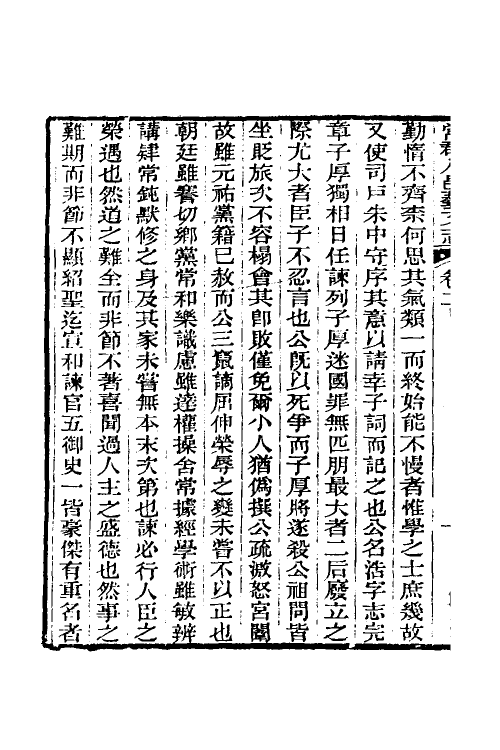 常郡八邑藝文志 卷二
勤惰不齊柰何思其氣類一而終始能不慢者惟學之士庶幾故
又使司戸朱中守序其意以請幸子詞而記之也公名浩字志完
章子厚獨相日任諫列子厚迷國罪無匹朋最大者二后廢立之
際尤大者臣子不忍言也公旣以死爭而子厚將遂殺公祖問皆
坐貶旅次不容榻會其卽敗僅免爾小人猶僞撰公疏激怒宮闈
故雖元祐黨籍已赦而公三竄謫屈伸榮辱之變未嘗不以正也
朝廷雖謇切鄉黨常和樂識慮雖達權操舍常據經學術雖敏辨
講肄常鈍默修之身及其家未嘗無本末次第也諫必行人臣之
榮遇也然道之難全而非節不著喜聞過人主之盛德也然事之
難期而非節不顯紹聖迄宣和諫官五御史一皆豪傑有重名者